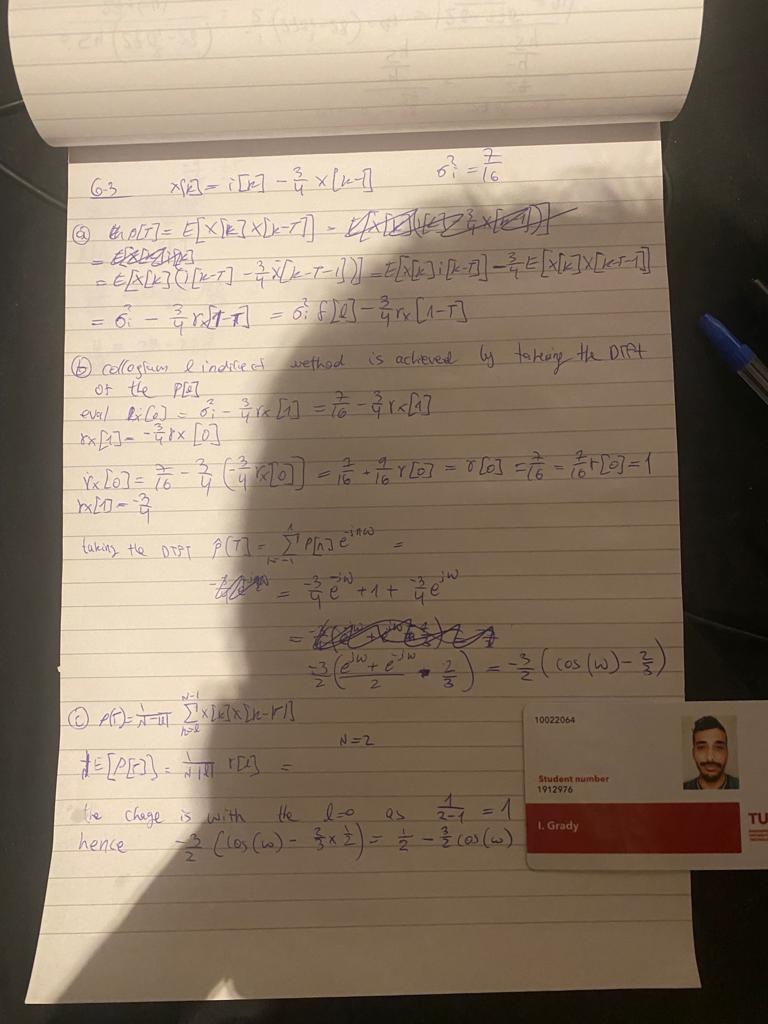 6.3 x[k] = i[k] - 3/4 x[k-1] σ²i = 7/16
(a) p[T] = E[x[k] x[k-T]] =
= E[x[k] (i[k-T] - 3/4 x[k-T-1])] = E[x[k] i[k-T]] - 3/4 E[x[k] x[k-T-1]]
= σ²i - 3/4 rx[1-T] = σ²i δ[l] - 3/4 rx[1-T]
(b) method is achieved by taking the DTFT
of the P[l]
eval rx[0] = σ²i - 3/4 rx[1] = 7/16 - 3/4 rx[1]
rx[1] = -3/4 rx[0]
rx[0] = 7/16 - 3/4 (-3/4 rx[0]) = 7/16 + 9/16 r[0] = r[0] = 7/16 = 7/16 r[0] = 1
rx[1] = -3/4
taking the DTFT p(T) = Σ P[n] e^-jnω =
= -3/4 e^-jω + 1 + -3/4 e^jω
-3/2 ( (e^jω + e^-jω)/2 - 2/3 ) = -3/2 ( cos(ω) - 2/3 )
(c) P(T) = 1/(N-|l|) Σ x[k] x[k-T]
N=2
E[P[T]] = 1/(N-|l|) r[l] =
the change is with the l=0 as 1/(2-1) = 1
hence -3/2 ( cos(ω) - 2/3 × 1/2 ) = 1/2 - 3/2 cos(ω)
10022064
Student number
1912976
I. Grady
TU